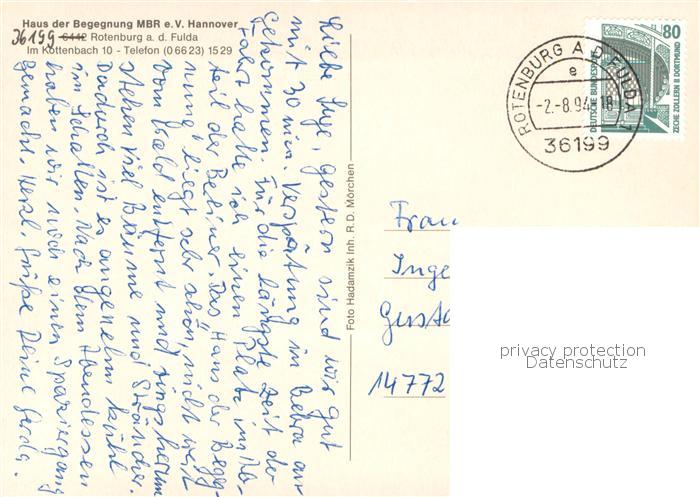 Haus der Begegnung MBR e.V. Hannover
36199 6442 Rotenburg a. d. Fulda
Im Kottenbach 10 - Telefon (0 66 23) 15 29
Liebe Inge, gestern sind wir gut
mit 30 min. Verspätung in Bebra an-
gekommen. Für die längste Zeit der
Fahrt hatte ich einen Platz im Ab-
teil der Berliner. Das Haus der Begeg-
nung liegt sehr schön, nicht weit
vom Wald entfernt und ringsherum
stehen viel Bäume und Sträucher.
Dadurch ist es angenehm kühl
im Schatten. Nach dem Abendessen
haben wir noch einen Spaziergang
gemacht. Herzl. Grüße Deine Gerda.
Foto Hadamzik Inh. R.D. Mörchen
ROTENBURG A. D. FULDA 1
e
-2.-8.94-18
36199
DEUTSCHE BUNDESPOST
80
ZECHE ZOLLERN II DORTMUND
Frau
Inge
Gusta
14772
privacy protection
Datenschutz